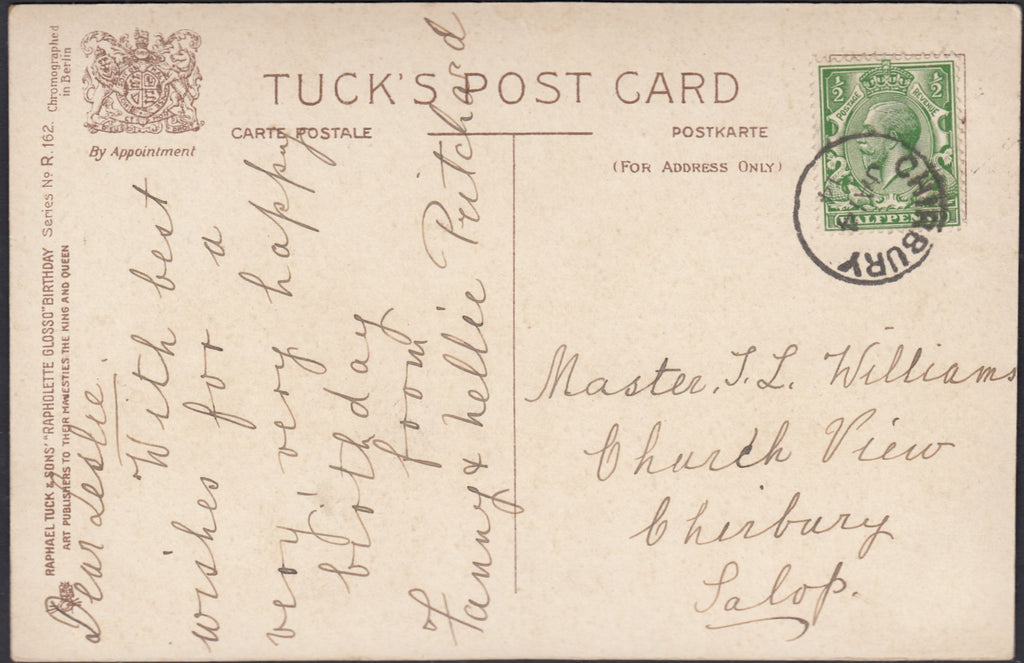 TUCK'S POST CARD
CARTE POSTALE
POSTKARTE
(FOR ADDRESS ONLY)
By Appointment
Chromographed
in Berlin
RAPHAEL TUCK & SONS' "RAPHOLETTE GLOSSO" BIRTHDAY Series No R. 162.
ART PUBLISHERS TO THEIR MAJESTIES THE KING AND QUEEN
Dear Leslie
With best
wishes for a
very very happy
birthday
from
Fanny & Nellie Pritchard
½ ½
POSTAGE REVENUE
HALFPENNY
CHIRBURY
Master. T. L. Williams
Church View
Chirbury
Salop.